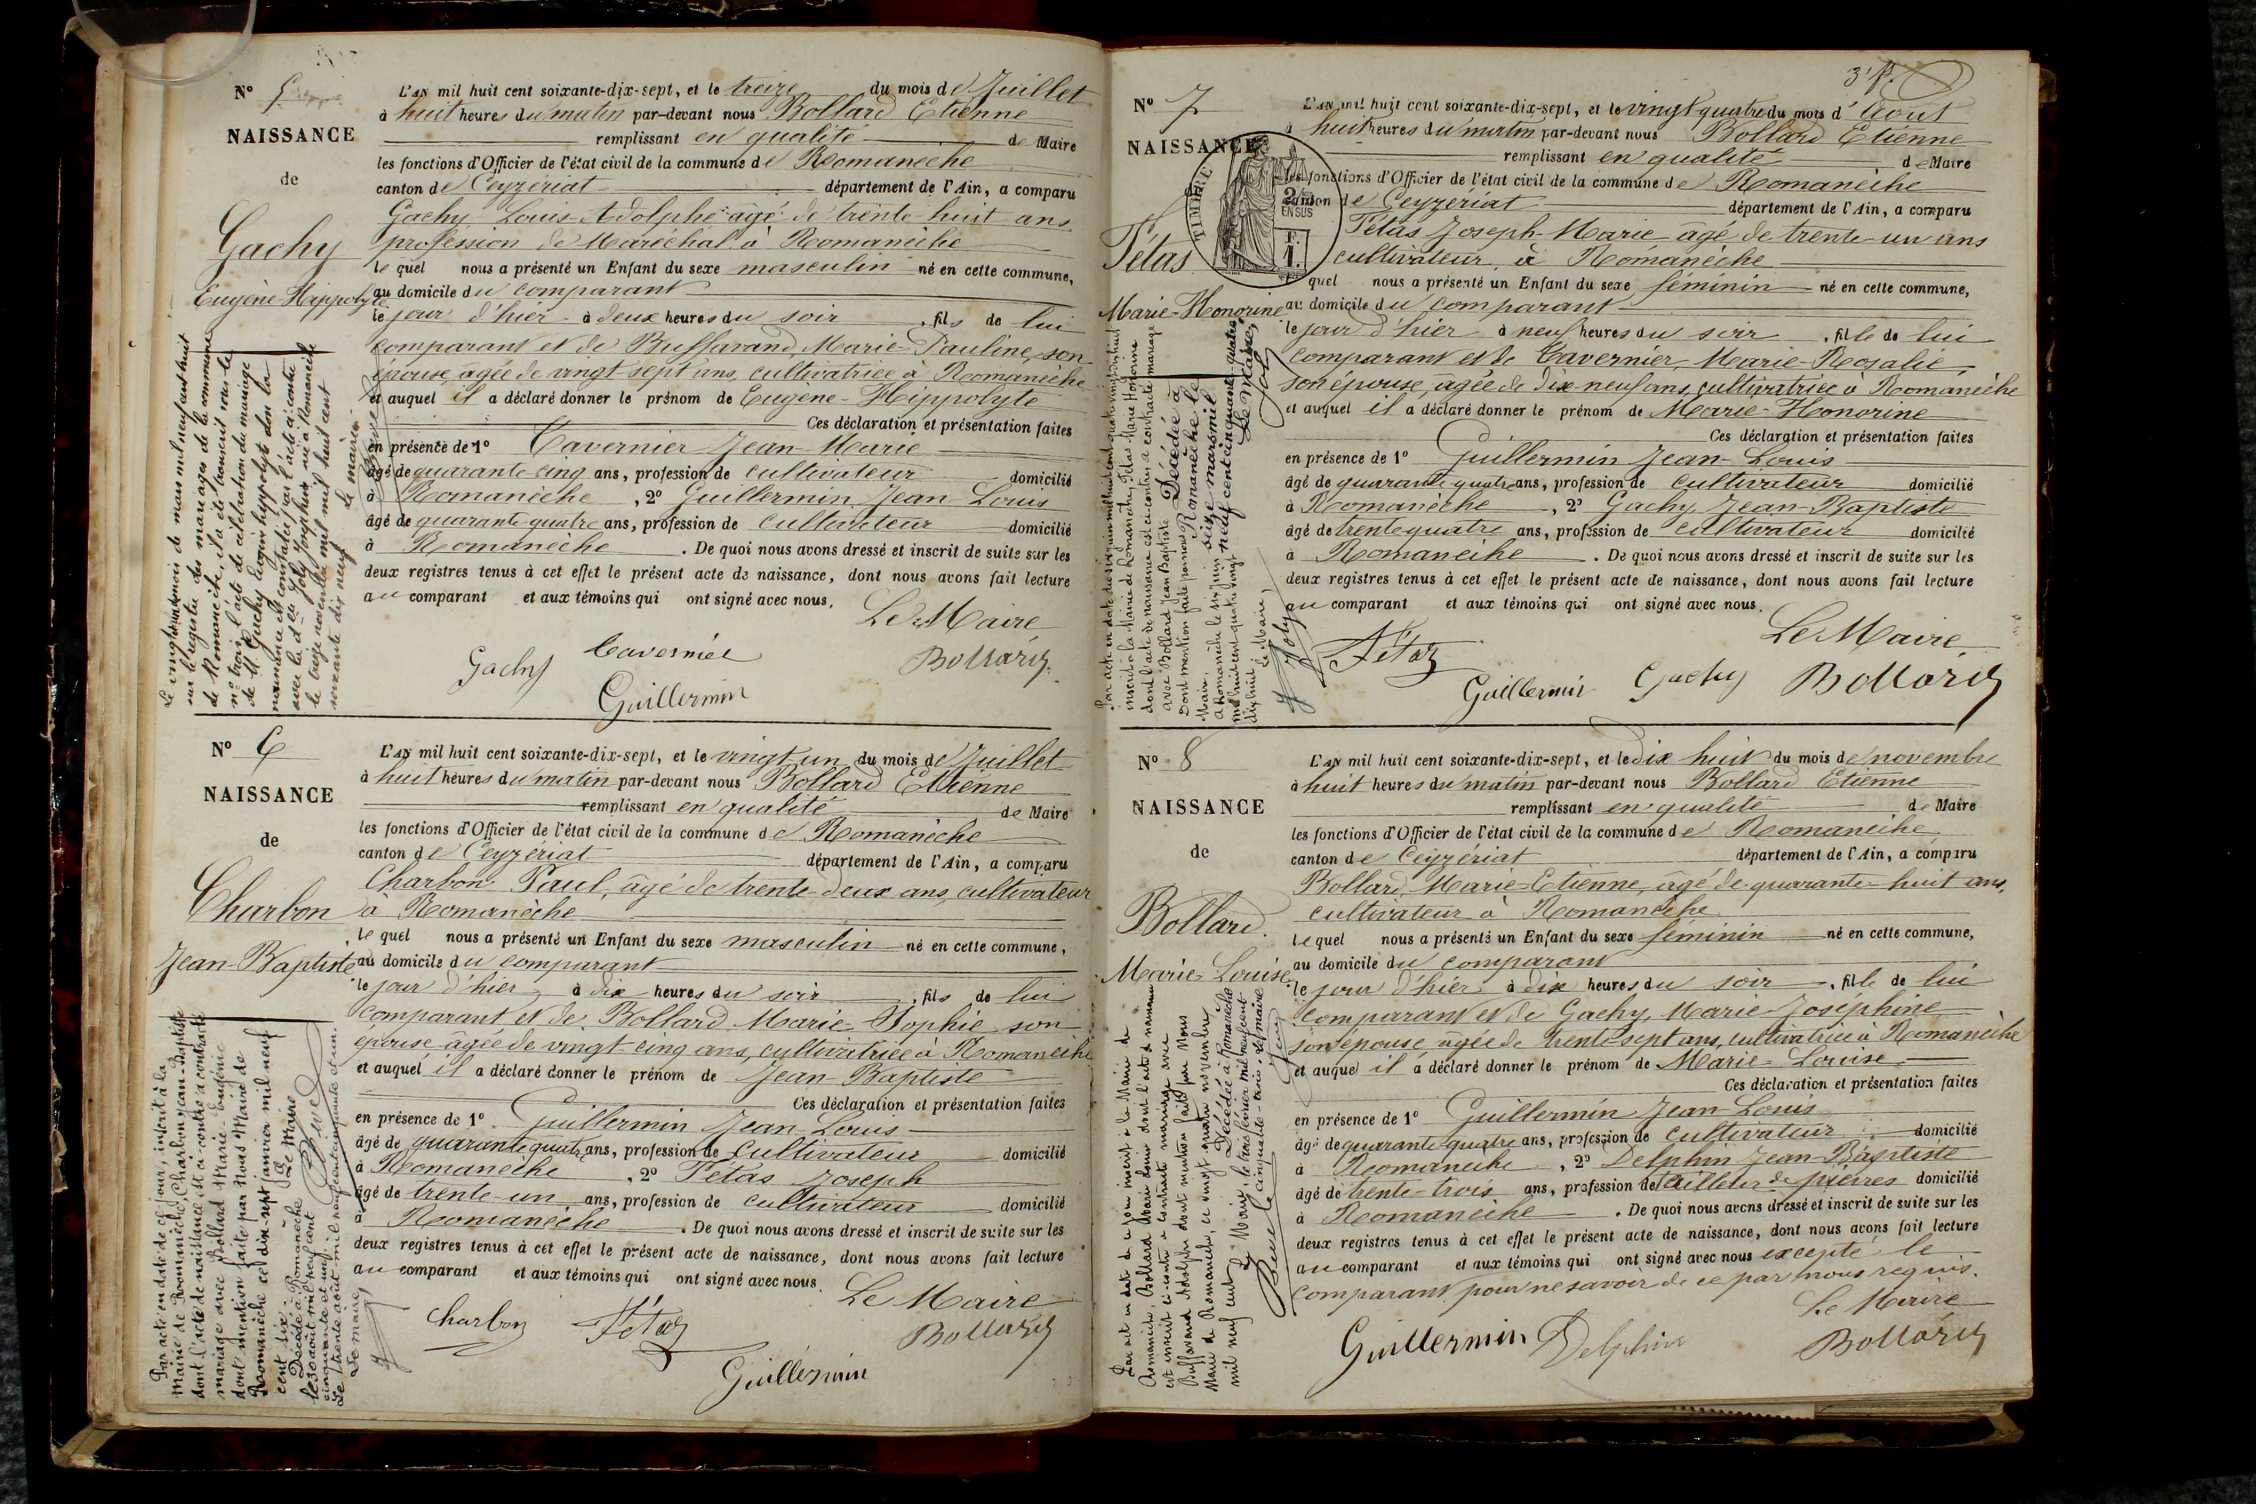 Nº 5
NAISSANCE
de
Gachy
Eugène-Hippolyte
L'AN mil huit cent soixante-dix-sept, et le treize du mois de Juillet
à huit heures du matin par-devant nous Bollard Etienne
remplissant en qualité de Maire
les fonctions d'Officier de l'état civil de la commune de Romanèche
canton de Ceyzériat département de l'Ain, a comparu
Gachy Louis Adolphe âgé de trente-huit ans
profession de Maréchal à Romanèche
le quel nous a présenté un Enfant du sexe masculin né en cette commune,
au domicile du comparant
le jour d'hier à deux heures du soir, fils de lui
comparant et de Buffavand, Marie-Pauline, son
épouse, âgée de vingt-sept ans, cultivatrice à Romanèche
et auquel il a déclaré donner le prénom de Eugène-Hippolyte
Ces déclaration et présentation faites
en présence de 1º Tavernier Jean-Marie
âgé de quarante-cinq ans, profession de cultivateur domicilié
à Romanèche, 2º Guillermin Jean-Louis
âgé de quarante-quatre ans, profession de cultivateur domicilié
à Romanèche. De quoi nous avons dressé et inscrit de suite sur les
deux registres tenus à cet effet le présent acte de naissance, dont nous avons fait lecture
au comparant et aux témoins qui ont signé avec nous.
Le Maire
Gachy Tavernier Bollard
Guillermin
Le vingt mois de mars mil neuf cent huit
sur le registre des mariages de la commune
de Romanèche, il a été transcrit sous le
nº trois l'acte de célébration du mariage
de M. Gachy Eugène hyppolyte dont la
naissance est constatée par l'acte ci-contre
avec la dlle Joly Joséphine née à Romanèche
le treize novembre mil huit cent
soixante dix neuf
Le maire
Nº 6
NAISSANCE
de
Charbon
Jean-Baptiste
L'AN mil huit cent soixante-dix-sept, et le vingt un du mois de Juillet
à huit heures du matin par-devant nous Bollard Etienne
remplissant en qualité de Maire
les fonctions d'Officier de l'état civil de la commune de Romanèche
canton de Ceyzériat département de l'Ain, a comparu
Charbon Paul, âgé de trente-deux ans, cultivateur
à Romanèche
le quel nous a présenté un Enfant du sexe masculin né en cette commune,
au domicile du comparant
le jour d'hier, à dix heures du soir, fils de lui
comparant et de Bollard Marie-Sophie son
épouse âgée de vingt-cinq ans, cultivatrice à Romanèche
et auquel il a déclaré donner le prénom de Jean-Baptiste
Ces déclaration et présentation faites
en présence de 1º Guillermin Jean-Louis
âgé de quarante quatre ans, profession de cultivateur domicilié
à Romanèche, 2º Fétas Joseph
âgé de trente-un ans, profession de cultivateur domicilié
à Romanèche. De quoi nous avons dressé et inscrit de suite sur les
deux registres tenus à cet effet le présent acte de naissance, dont nous avons fait lecture
au comparant et aux témoins qui ont signé avec nous.
Le Maire
Charbon Fétaz Bollard
Guillermin
Par acte en date de ce jour, inscrit à la
Mairie de Romanèche, Charbon Jean-Baptiste
dont l'acte de naissance est ci-contre a contracté
mariage avec Bollard Marie-Eugénie
dont mention faite par Nous Maire de
Romanèche ce dix-sept janvier mil neuf
cent dix.
Le Maire
Décédé à Romanèche
le 30 août mil neuf cent
cinquante et un.
Le trente août mil neuf cent cinquante et un.
Le maire
3' f.
Nº 7
NAISSANCE
Fétas
Marie-Honorine
TIMBRE
2/10
EN SUS
F.
1.
L'AN mil huit cent soixante-dix-sept, et le vingt quatre du mois d'Août
à huit heures du matin par-devant nous Bollard Etienne
remplissant en qualité de Maire
les fonctions d'Officier de l'état civil de la commune de Romanèche
canton de Ceyzériat département de l'Ain, a comparu
Fétas Joseph-Marie âgé de trente-un ans
cultivateur à Romanèche
le quel nous a présenté un Enfant du sexe féminin né en cette commune,
au domicile du comparant
le jour d'hier à neuf heures du soir, fille de lui
comparant et de Tavernier, Marie-Rosalie,
son épouse, âgée de dix-neuf ans, cultivatrice à Romanèche
et auquel il a déclaré donner le prénom de Marie-Honorine
Ces déclaration et présentation faites
en présence de 1º Guillermin Jean-Louis
âgé de quarante quatre ans, profession de cultivateur domicilié
à Romanèche, 2º Gachy Jean-Baptiste
âgé de trente quatre ans, profession de cultivateur domicilié
à Romanèche. De quoi nous avons dressé et inscrit de suite sur les
deux registres tenus à cet effet le présent acte de naissance, dont nous avons fait lecture
au comparant et aux témoins qui ont signé avec nous.
Le Maire
Fétaz
Guillermin Gachy Bollard
Par acte en date du six juin mil huit cent quatre vingt dix huit
inscrit à la Mairie de Romanèche, Fétas Marie Honorine
dont l'acte de naissance est ci-contre, a contracté mariage
avec Bollard Jean Baptiste
Dont mention faite par nous
Maire,
à Romanèche le six juin
mil huit cent quatre vingt
dix huit
Le Maire,
Joly
Décédée à
Romanèche le
seize mars mil
neuf cent cinquante-quatre
Le Maire,
Joly
Nº 8
NAISSANCE
de
Bollard.
Marie-Louise
L'AN mil huit cent soixante-dix-sept, et le dix huit du mois de novembre
à huit heures du matin par-devant nous Bollard Etienne
remplissant en qualité de Maire
les fonctions d'Officier de l'état civil de la commune de Romanèche
canton de Ceyzériat département de l'Ain, a comparu
Bollard Marie-Etienne, âgé de quarante-huit ans,
cultivateur à Romanèche
le quel nous a présenté un Enfant du sexe féminin né en cette commune,
au domicile du comparant
le jour d'hier à dix heures du soir, fille de lui
comparant et de Gachy, Marie-Joséphine
son épouse âgée de trente sept ans, cultivatrice à Romanèche
et auquel il a déclaré donner le prénom de Marie-Louise
Ces déclaration et présentation faites
en présence de 1º Guillermin Jean-Louis
âgé de quarante quatre ans, profession de cultivateur domicilié
à Romanèche, 2º Delphin Jean-Baptiste
âgé de trente-trois ans, profession de tailleur de pierres domicilié
à Romanèche. De quoi nous avons dressé et inscrit de suite sur les
deux registres tenus à cet effet le présent acte de naissance, dont nous avons fait lecture
au comparant et aux témoins qui ont signé avec nous excepté le
comparant pour ne savoir de ce par nous requis.
Le Maire
Guillermin Delphin Bollard
Par acte en date de ce jour inscrit à la Mairie de
Romanèche, Bollard Marie Louise dont l'acte de naissance
est inscrit ci-contre a contracté mariage avec
Buffavand Adolphe dont mention faite par Nous
Maire de Romanèche, ce vingt quatre novembre
mil neuf cent
Le Maire
Décédée à Romanèche
le trois février mil neuf cent
cinquante-trois. Le maire